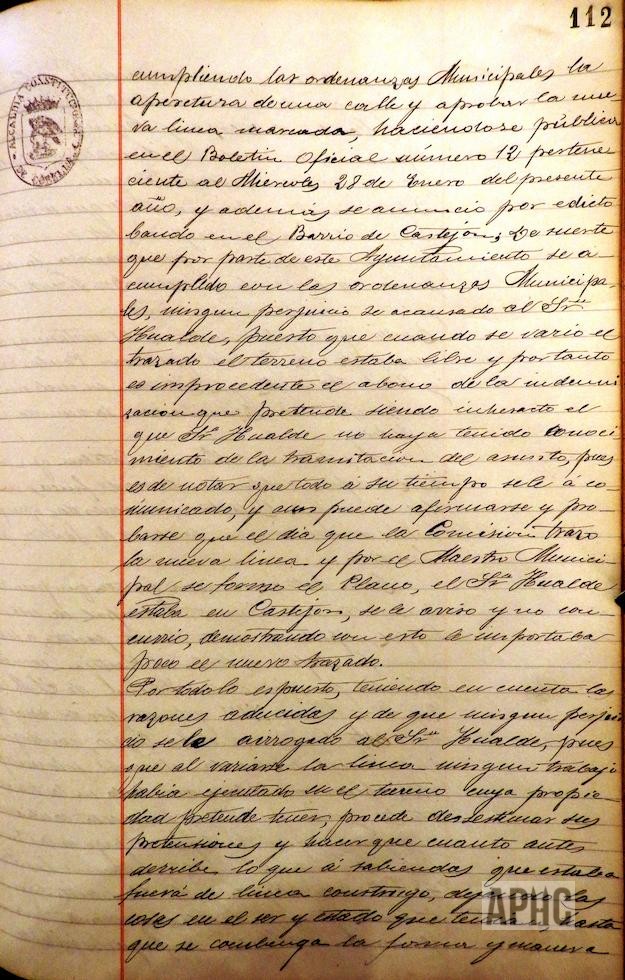 112
ALCALDIA CONSTITUCIONAL
DE CORELLA
cumpliendo las ordenanzas Municipales la
apertura de una calle y aprobar la nue-
va linea marcada, haciendose pública
en el Boletin Oficial número 12 pertene
ciente al Miercoles 28 de Enero del presente
año, y además se anuncio por edicto
bando en el Barrio de Castejón; De suerte
que por parte de este Ayuntamiento se a
cumplido con las ordenanzas Municipa-
les, ningun perjuicio se a causado al Sr.
Hualde, puesto que cuando se vario el
trazado el terreno estaba libre y por tanto
es improcedente el abono de la indemni
zacion que pretende siendo inhexacto el
que Sr. Hualde no haya tenido conoci
miento de la tramitacion del asunto, pues
es de notar que todo á su tiempo se le á co-
municado, y aun puede afirmarse y pro-
barse que el dia que la Comision trazo
la nueva linea y por el Maestro Munici-
pal se formo el Plano, el Sr. Hualde
estaba en Castejón, se le aviso y no con-
currio, demostrando con esto le importaba
poco el nuevo trazado.
Por todo lo espuesto, teniendo en cuenta las
razones aducidas y de que ningun perjui
cio se le a irrogado al Sr. Hualde, pues
que al variarse la linea ningun trabajo
habia ejecutado en el terreno cuya propie-
dad pretende tener, procede desestimar sus
pretensiones y hacer que cuanto antes
derribe lo que á sabiendas que estaba
fuera de linea construyo, dejando las
cosas en el ser y estado que tenian, hasta
que se combenga la forma y manera
APHC